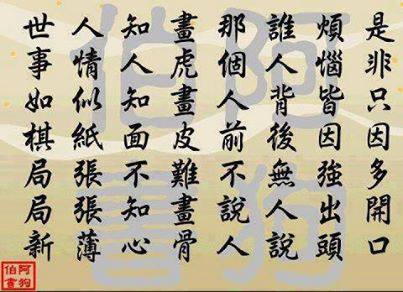 是非只因多開口
煩惱皆因強出頭
誰人背後無人說
那個人前不說人
畫虎畫皮難畫骨
知人知面不知心
人情似紙張張薄
世事如棋局局新
阿狗
伯書
阿狗
伯